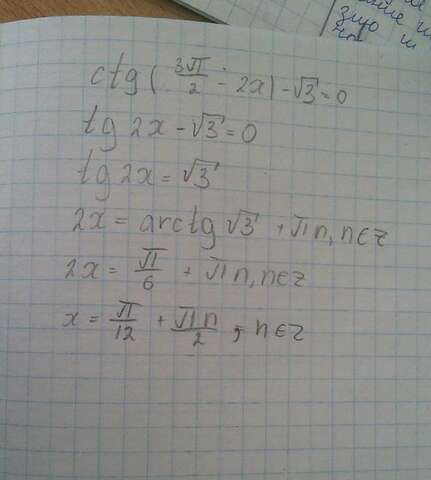 зую и
ctg(3π/2 - 2x) - √3 = 0
tg 2x - √3 = 0
tg 2x = √3
2x = arctg √3 + πn, n∈z
2x = π/6 + πn, n∈z
x = π/12 + πn/2, n∈z